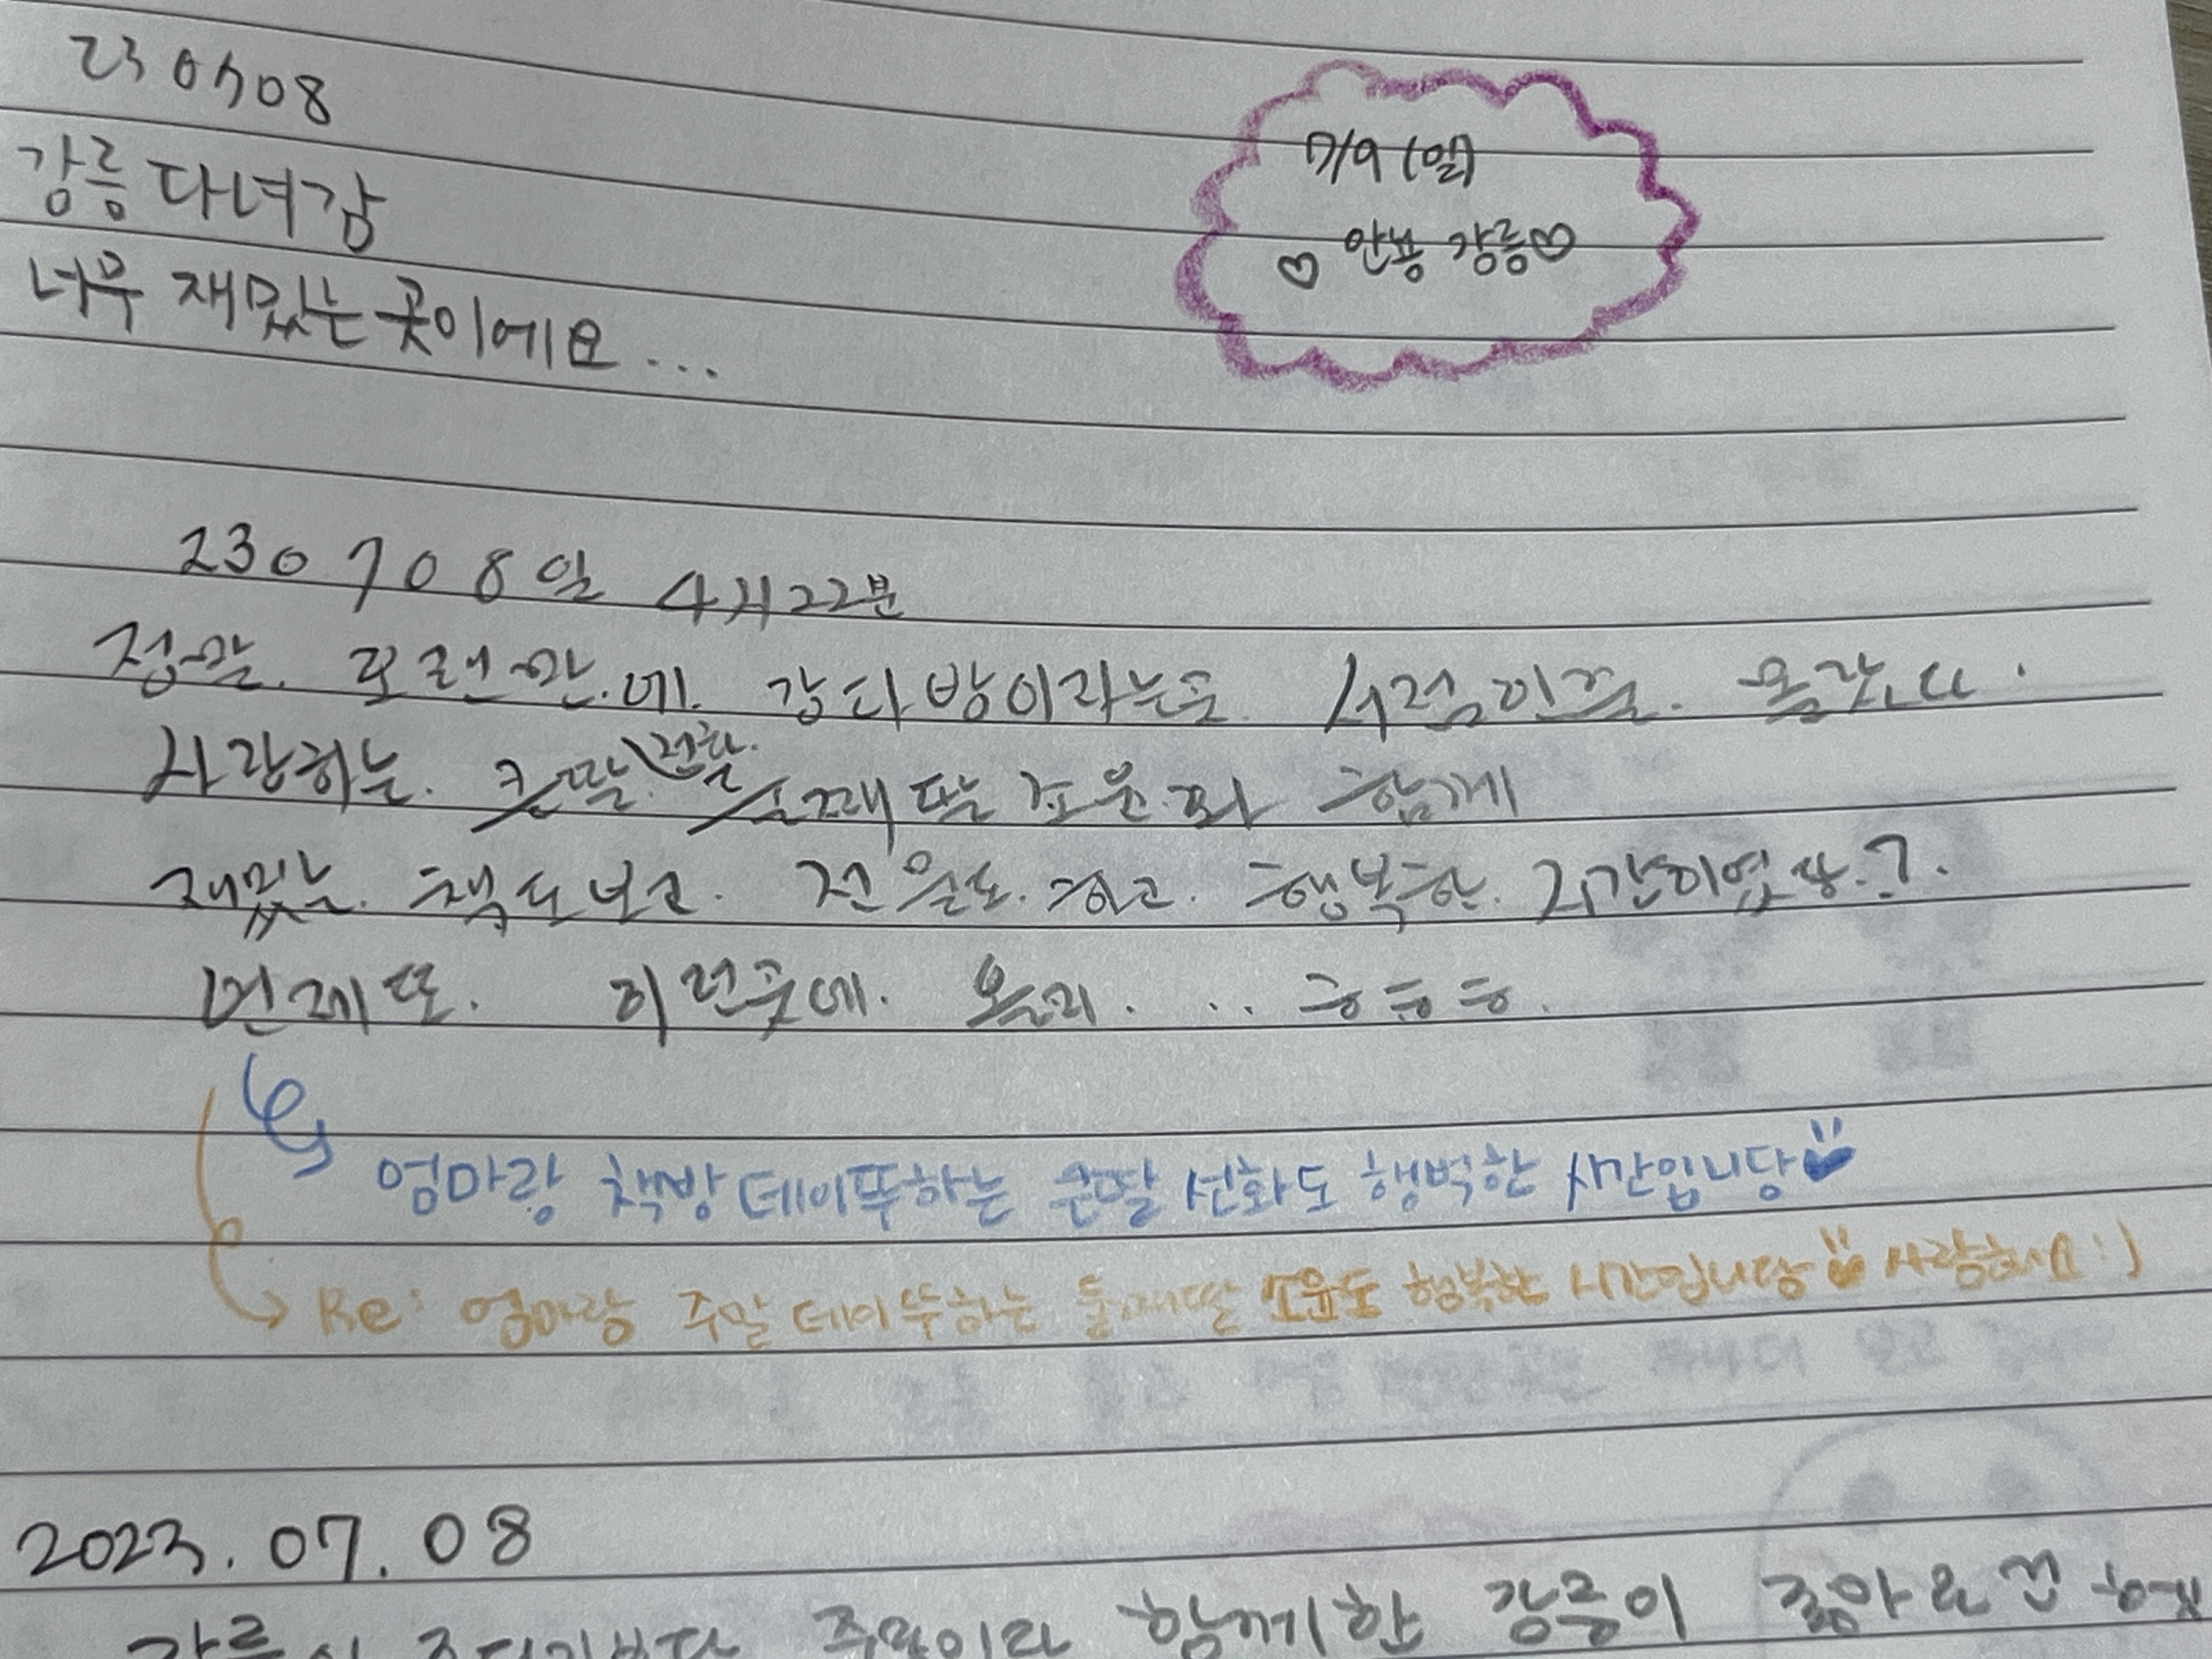 230708
강릉 다녀감
너무 재밌는 곳이에요...
7/9 (일)
♡ 안뇽 강릉♡
230708일 4시22분
정말. 오랜만.에. 강다방이라는곳. 서점이곳을. 올랐다.
사랑하는. 큰딸. 선화. 소째딸 소윤.과 함께
재밌는. 책도보고. 전율도.하고. 행복한. 시간이였다.?.
언제또. 이런곳에. 올지. ... ㅎㅎㅎ.
엄마랑 책방데이뚜하는 큰딸 선화도 행벅한 시간입니당
Re: 엄마랑 주말데이뚜하는 둘째딸 소윤도 행복한 시간입니당 사랑하시요:)
2023.07.08
강릉이 주말이라 함께한 강릉이 좋아요